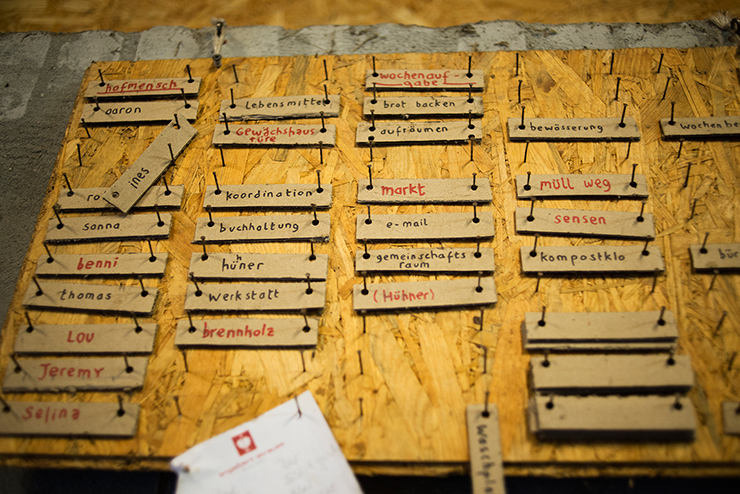 hofmensch
aaron
ines
ro
sanna
benni
thomas
LOU
Jeremy
Selina
Lebensmittel
Gewächshaus
türe
koordination
buchhaltung
hühner
werkstatt
brennholz
wochenauf-
gabe
brot backen
aufräumen
markt
e-mail
gemeinschafts
raum
(Hühner)
waschpl
bewässerung
müll weg
sensen
kompostklo
wochenbe
bür